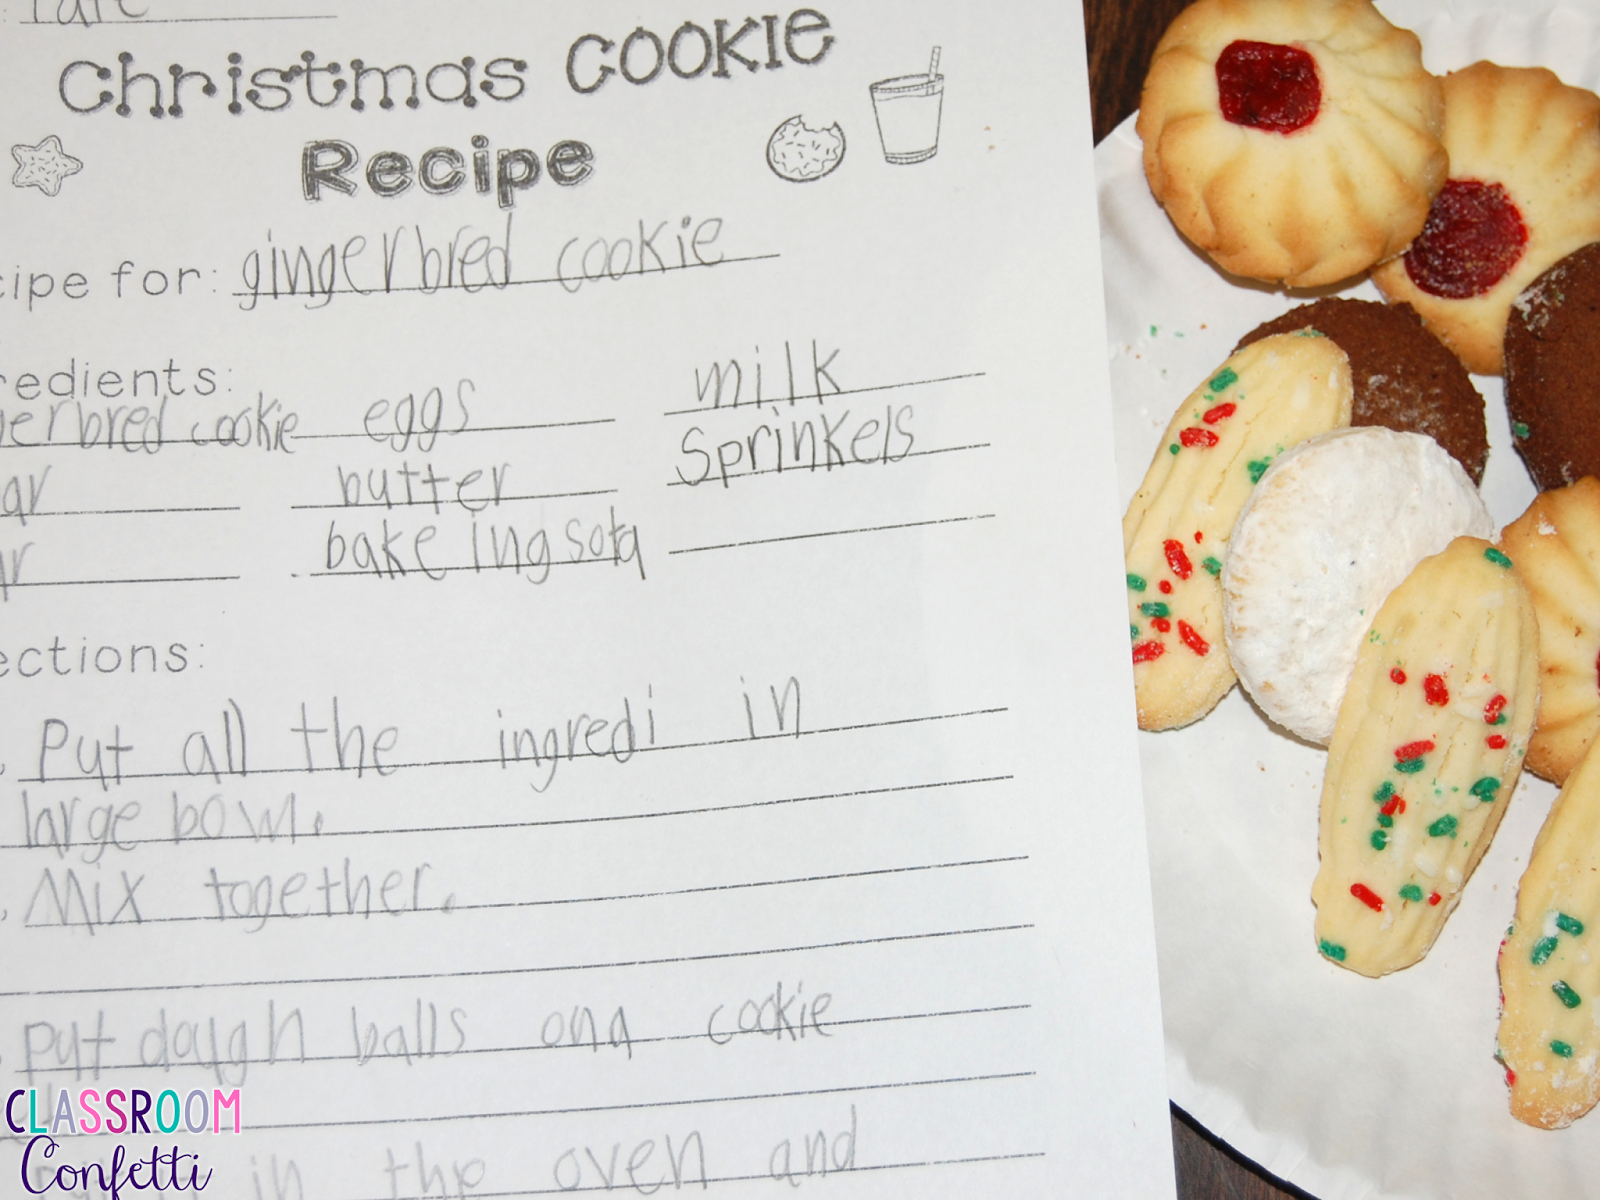 Christmas COOKIE
Recipe
cipe for: gingerbred cookie
redients:
gerbred cookie eggs milk
ar butter Sprinkels
ar bakeing sota
ections:
Put all the ingredi in
large bowl.
Mix together.
put dough balls ona cookie
in the oven and
CLASSROOM
Confetti